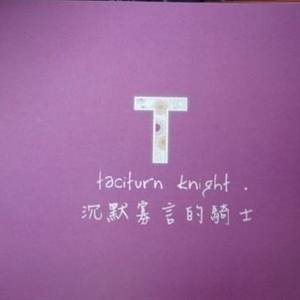 T
taciturn knight .
沉默寡言的騎士